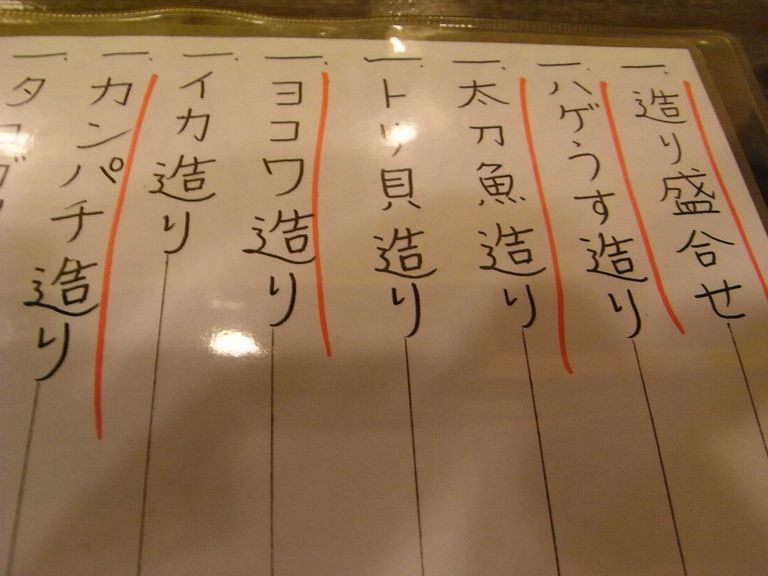 一、造り盛合せ
一、ハゲうす造り
一、太刀魚造り
一、トリ貝造り
一、ヨコワ造り
一、イカ造り
一、カンパチ造り
一、タコ